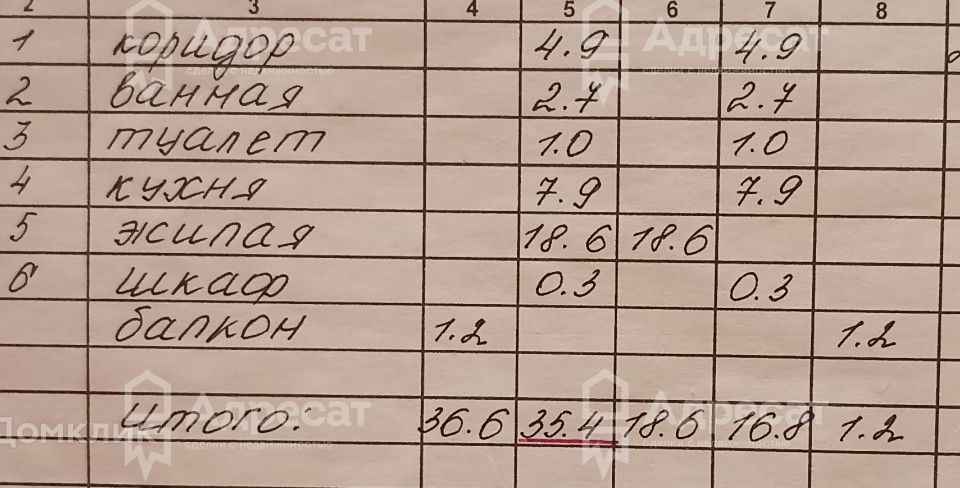 2 3 4 5 6 7 8
1 коридор 4.9 4.9
2 ванная 2.7 2.7
3 туалет 1.0 1.0
4 кухня 7.9 7.9
5 жилая 18.6 18.6
6 шкаф 0.3 0.3
балкон 1.2 1.2
Итого: 36.6 35.4 18.6 16.8 1.2
Адресат
сделки с недвижимостью
Адресат
сделки с недвижимостью
Домклик
Адресат
сделки с недвижимостью
Адресат
сделки с недвижимостью